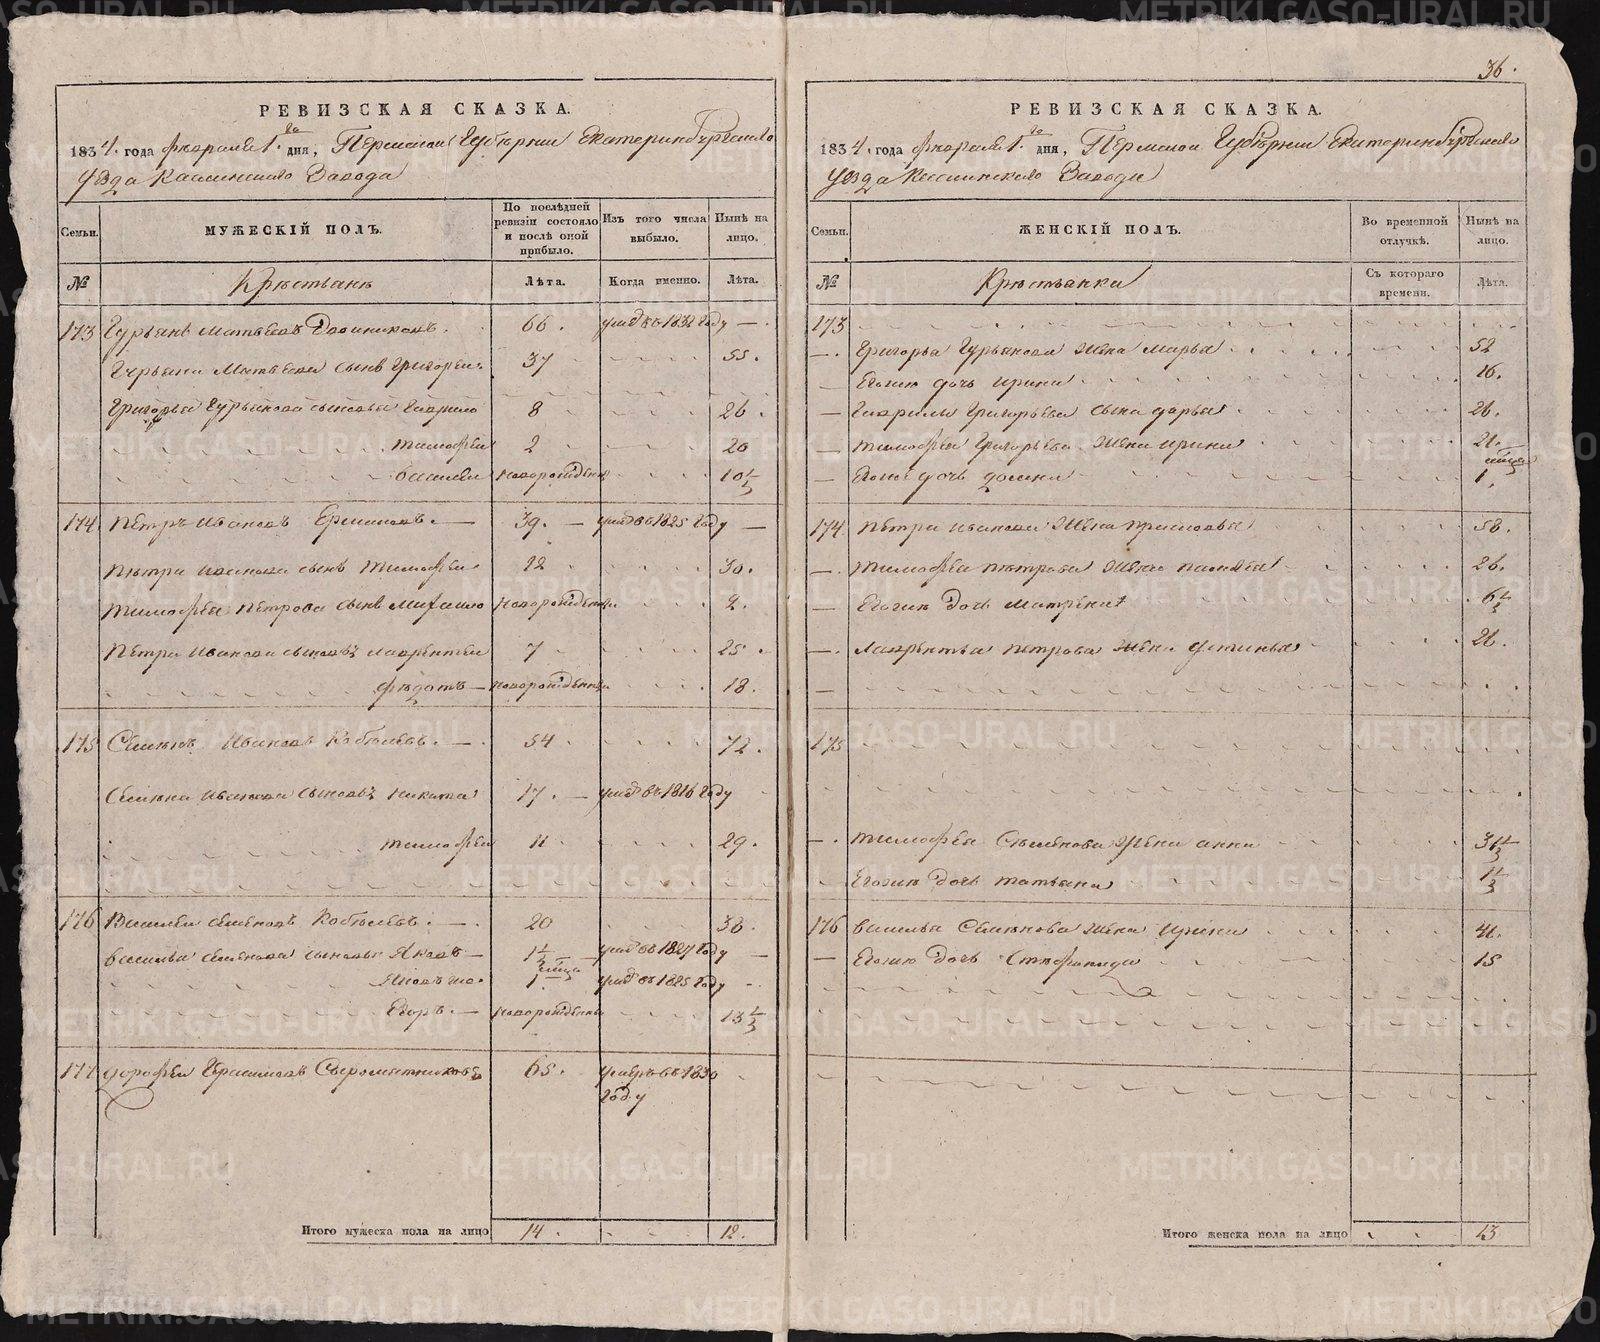 36.
РЕВИЗСКАЯ СКАЗКА.
1834. года февраля 1.го дня, Пермской Губернии Екатеринбургскаго
Уезда Каслинскаго Завода
Семьи.
МУЖЕСКІЙ ПОЛЪ.
По послѣдней ревизіи состояло и послѣ оной прибыло.
Изъ того числа выбыло.
Нынѣ на лицо.
№
Крестьяне
Лѣта.
Когда именно.
Лѣта.
173 Гурьянъ Матвеевъ 66. умеръ въ 1832 Году
Гурьяна Матвеева сынъ Григорей 37 55.
Григорья Гурьянова сыновья Гаврило 8 26.
Тимофей 2 20
Василей новорожденный 10 1/2
174 Петръ Ивановъ 39. умеръ въ 1825 Году
Петра Иванова сынъ Тимофей 12 30.
Тимофея Петрова сынъ Михайло новорожденный 2.
Петра Иванова сыновья Лаврентей 7 25.
Федотъ новорожденный 18.
175 Семенъ Ивановъ 54 72.
Семена Иванова сыновья Никита 17. умеръ въ 1816 Году
Тимофей 11 29.
176 Василей Семеновъ 20 38.
Василья Семенова сыновья Яковъ 1 1/2 умеръ въ 1827 Году
1 умеръ въ 1825 Году
Егоръ новорожденный 13 1/2
177 Дорофей Сыромятниковъ 65. умеръ въ 1830
Году
Итого мужеска пола на лицо 14. 12.
РЕВИЗСКАЯ СКАЗКА.
1834. года февраля 1.го дня, Пермской Губернии Екатеринбургскаго
Уезда Каслинскаго Завода
Семьи.
ЖЕНСКІЙ ПОЛЪ.
Во временной отлучкѣ.
Нынѣ на лицо.
№
Крестьянки
Съ котораго времени.
Лѣта.
173
Григорья Гурьянова жена Марья 52
Егоже дочь Ирина 16.
Гаврилы Григорьева Дарья 26.
Тимофея Григорьева жена Ирина 21.
Егоже дочь 1.
174 Петра Иванова жена Прасковья 58.
Тимофея Петрова жена 26.
Егоже дочь Матрена 6 1/2
Лаврентья Петрова жена Устинья 26.
175
Тимофея Семенова жена Анна
Егоже дочь Татьяна 1 1/2
176 Василья Семенова жена Ирина 41.
Егоже дочь Степанида 15
Итого женска пола на лицо 13
METRIKI.GASO-URAL.RU